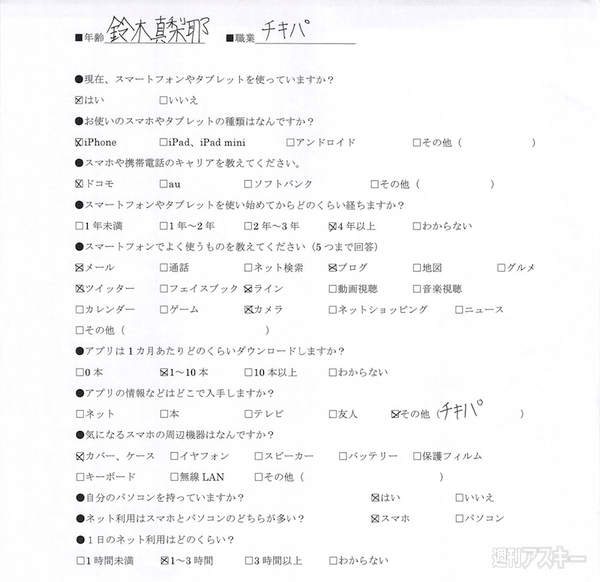 ■年齢 鈴木真梨耶 ■職業 チキパ
●現在、スマートフォンやタブレットを使っていますか？
☒はい □いいえ
●お使いのスマホやタブレットの種類はなんですか？
☒iPhone □iPad、iPad mini □アンドロイド □その他（ ）
●スマホや携帯電話のキャリアを教えてください。
☒ドコモ □au □ソフトバンク □その他（ ）
●スマートフォンやタブレットを使い始めてからどのくらい経ちますか？
□1年未満 □1年～2年 □2年～3年 ☒4年以上 □わからない
●スマートフォンでよく使うものを教えてください（5つまで回答）
☒メール □通話 □ネット検索 ☒ブログ □地図 □グルメ
☒ツイッター □フェイスブック ☒ライン □動画視聴 □音楽視聴
□カレンダー □ゲーム ☒カメラ □ネットショッピング □ニュース
□その他（ ）
●アプリは1カ月あたりどのくらいダウンロードしますか？
□0本 ☒1～10本 □10本以上 □わからない
●アプリの情報などはどこで入手しますか？
□ネット □本 □テレビ □友人 ☒その他（チキパ ）
●気になるスマホの周辺機器はなんですか？
☒カバー、ケース □イヤフォン □スピーカー □バッテリー □保護フィルム
□キーボード □無線LAN □その他（ ）
●自分のパソコンを持っていますか？ ☒はい □いいえ
●ネット利用はスマホとパソコンのどちらが多い？ ☒スマホ □パソコン
●１日のネット利用はどのくらい？
□1時間未満 ☒1～3時間 □3時間以上 □わからない
週刊アスキー